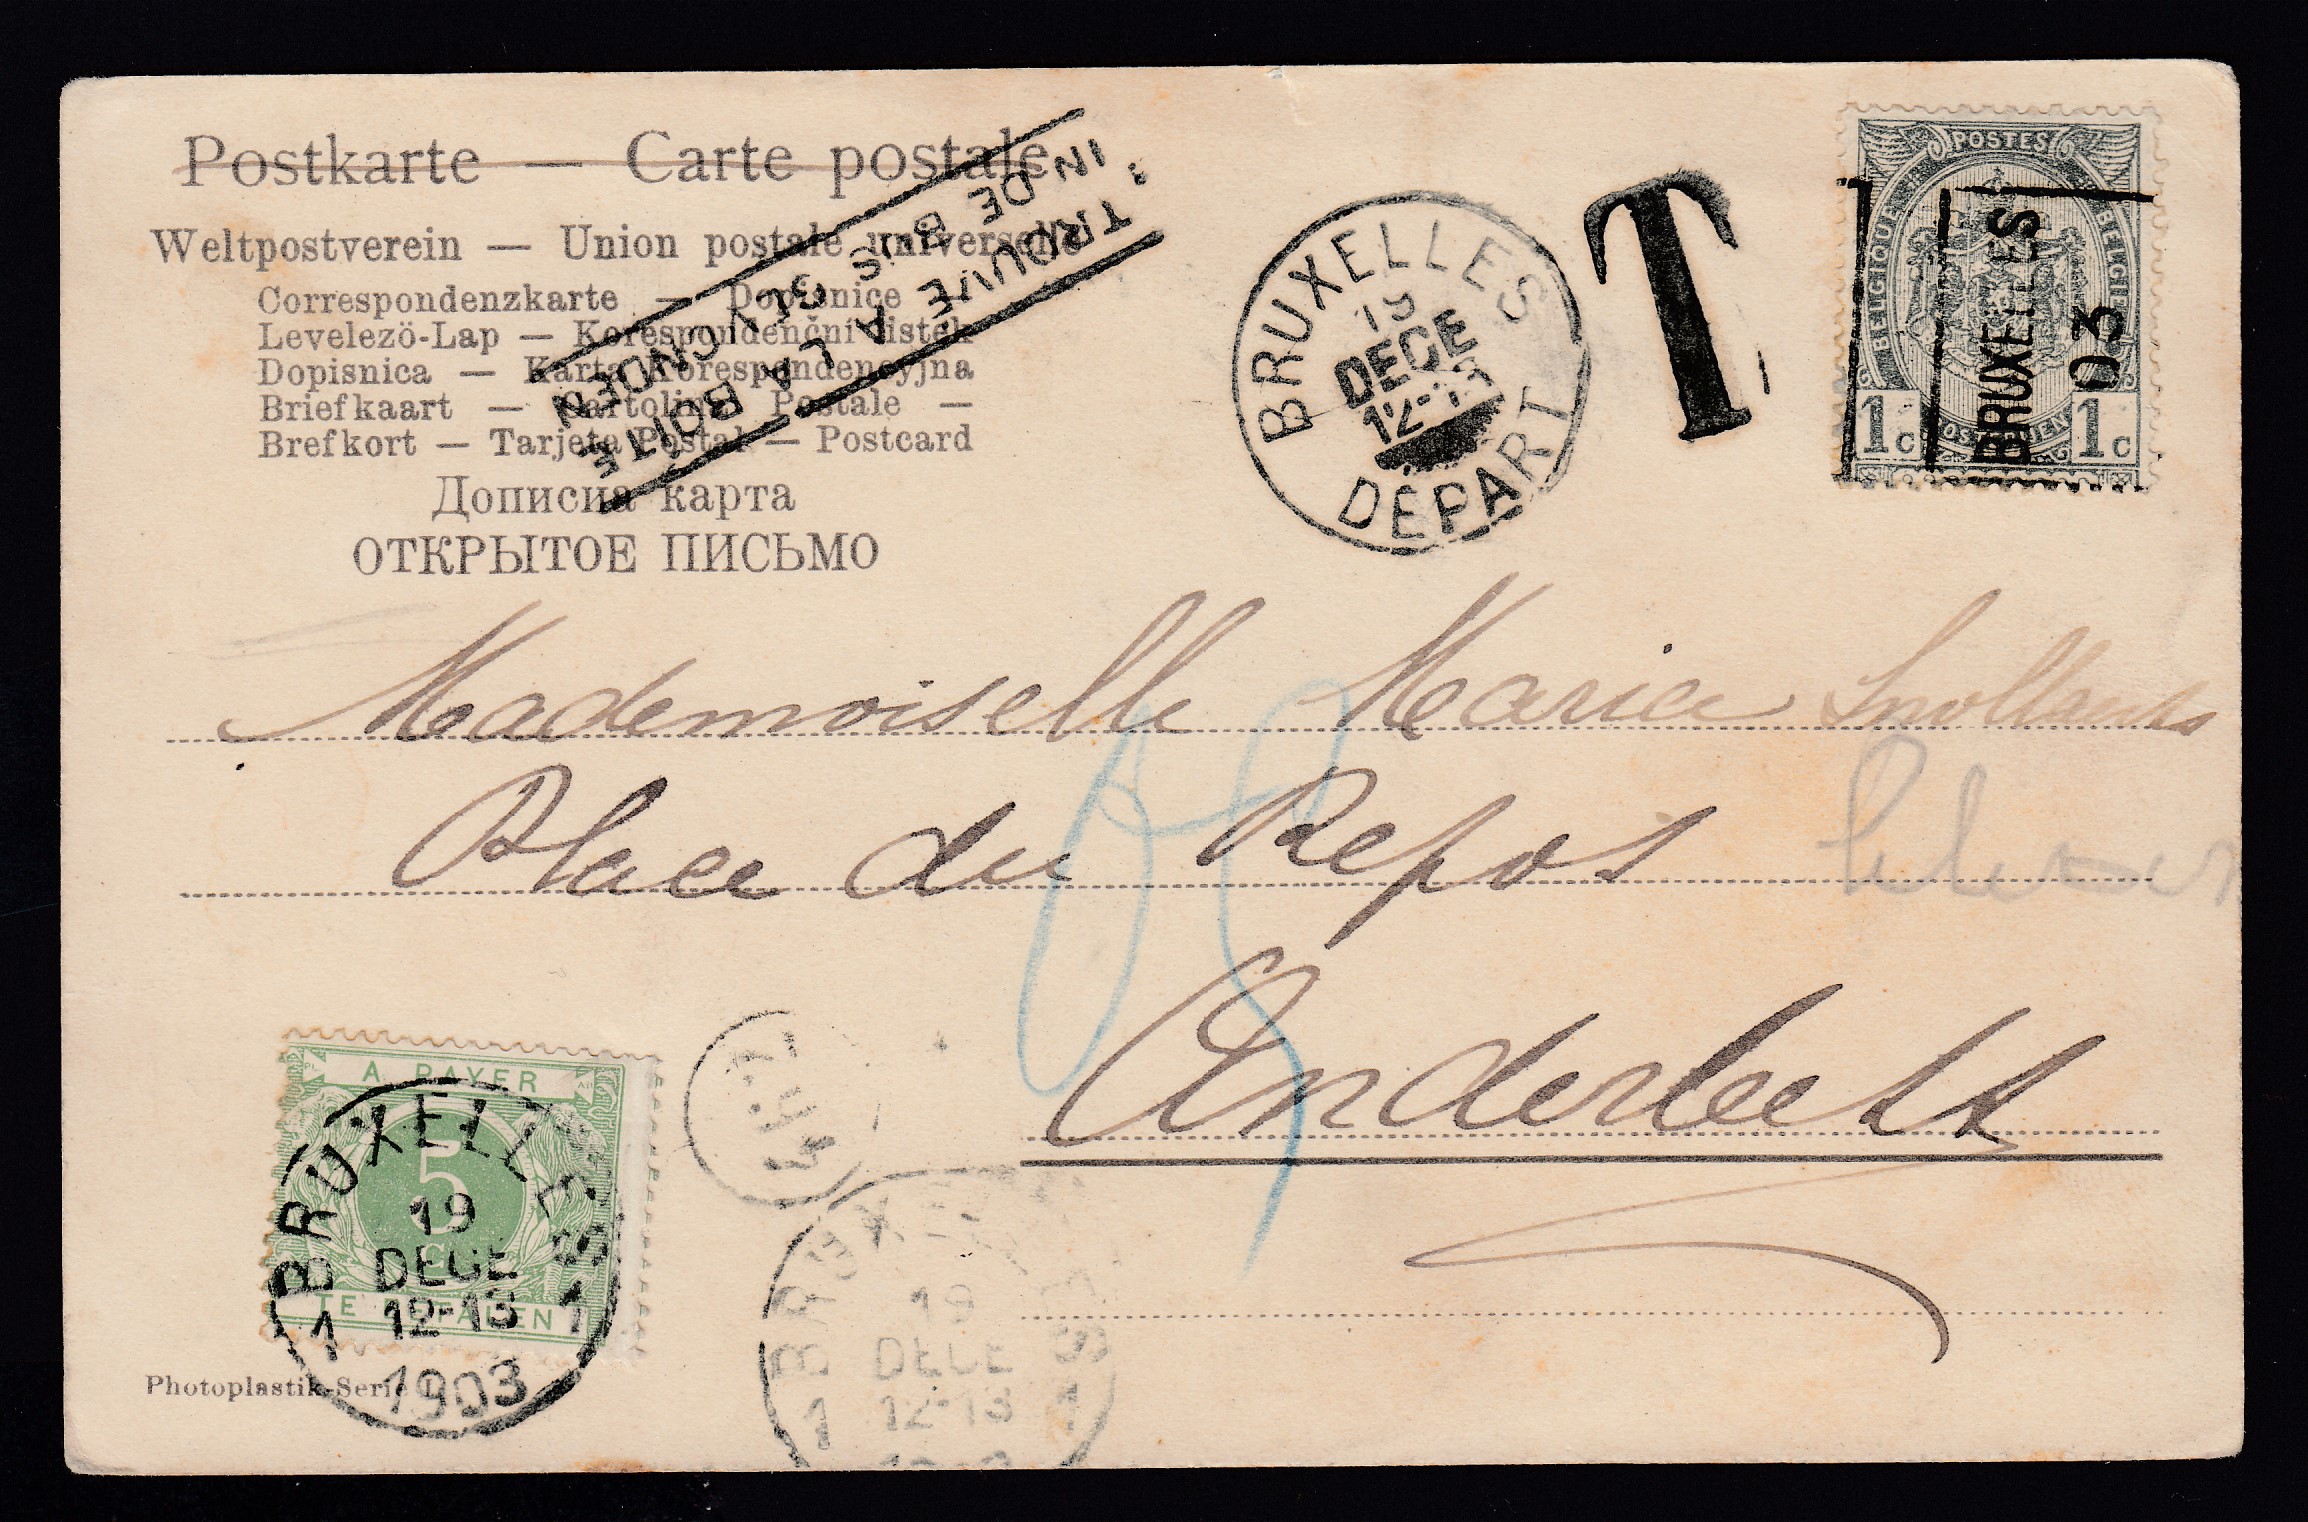 Postkarte — Carte postale
Weltpostverein — Union postale universelle
Correspondenzkarte — Dopisnice
Levelezö-Lap — Korespondenční lístek
Dopisnica — Karta Korespondencyjna
Briefkaart — Cartolina Postale —
Brefkort — Tarjeta Postal — Postcard
Дописна карта
ОТКРЫТОЕ ПИСЬМО
TROUVÉ A LA BOITE
IN DE BUS GEVONDEN
BRUXELLES
19
DECE
12-13
DEPART
T
POSTES
BELGIQUE
BELGIE
POSTERIJEN
1c 1c
BRUXELLES
03
Mademoiselle Marie
Place du Repos
Anderlecht
A PAYER
5
TE BETALEN
BRUXELLES
19
DECE
12-13
1 1
1903
BRUXELLES
19
DECE
12-13
1 1
Photoplastik-Serie